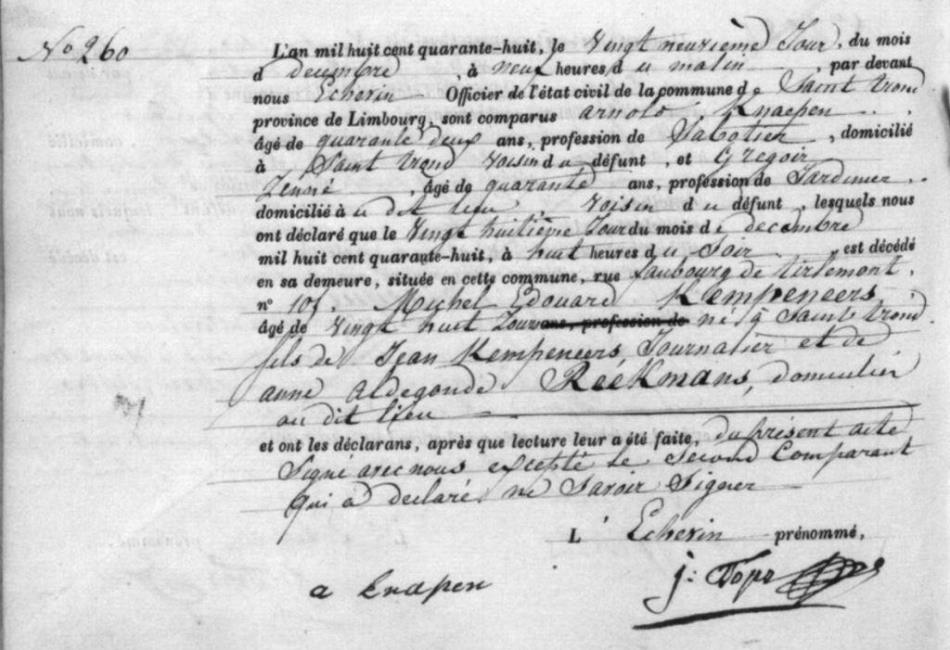 No 260
L'an mil huit cent quarante-huit, le Vingt neuvieme Jour, du mois
d decembre, à neuf heures du matin, par devant
nous Echevin Officier de l'état civil de la commune de Saint trond
province de Limbourg, sont comparus arnold Knaepen
âgé de quarante deux ans, profession de Sabotier, domicilié
à Saint trond voisin du défunt, et Gregoir
Jenné, âgé de quarante ans, profession de Jardinier
domicilié à u dit lieu voisin du défunt, lesquels nous
ont déclaré que le Vingt huitieme Jour du mois de decembre
mil huit cent quarante-huit, à huit heures du Soir est décédé
en sa demeure, située en cette commune, rue faubourg de tirlemont,
n° Michel Edouard Kempeneers,
âgé de vingt huit Jours ans, profession de né à Saint trond
fils de Jean Kempeneers, Journalier et de
anne aldegonde Reekmans, domicilié
au dit lieu
et ont les déclarans, après que lecture leur a été faite, du présent acte
Signé avec nous excepté le Second Comparant
qui a declaré ne Savoir Signer
L' Echevin prénommé,
a knapen
j: Tops